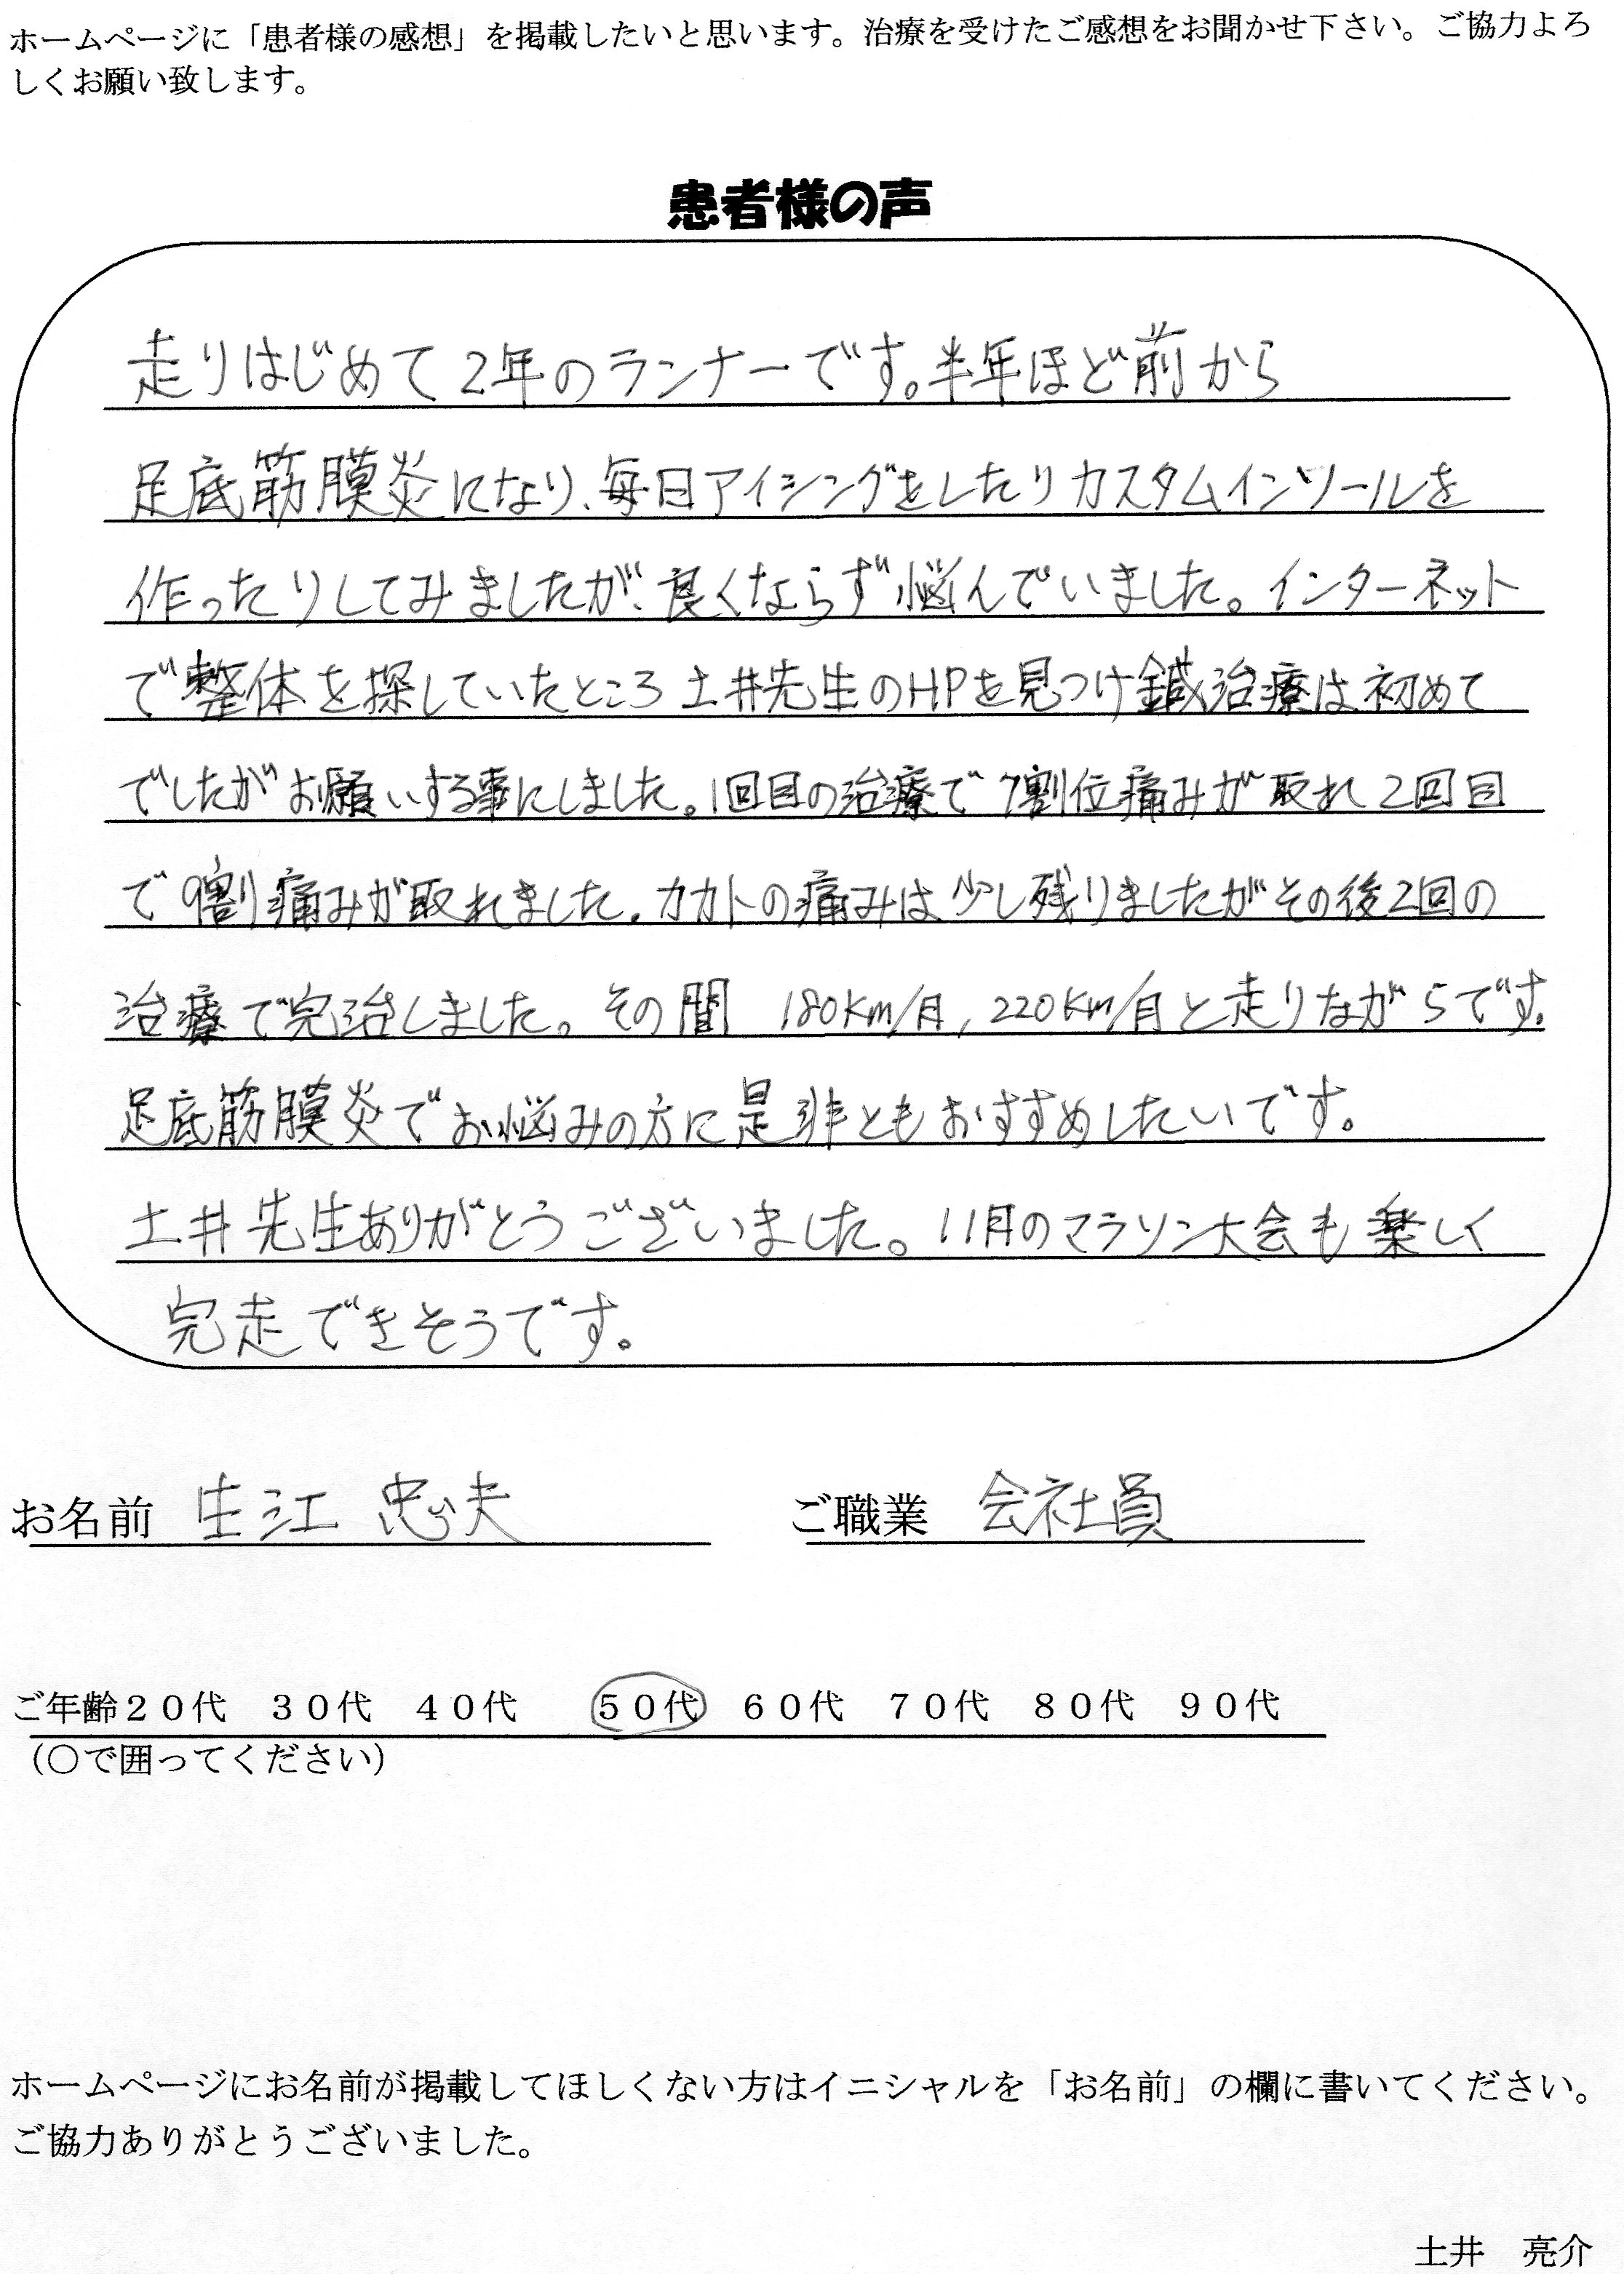 ホームページに「患者様の感想」を掲載したいと思います。治療を受けたご感想をお聞かせ下さい。ご協力よろ
しくお願い致します。
患者様の声
走りはじめて2年のランナーです。半年ほど前から
足底筋膜炎になり、毎日アイシングをしたりカスタムインソールを
作ったりしてみましたが、良くならず悩んでいました。インターネット
で整体を探していたところ土井先生のHPを見つけ鍼治療は初めて
でしたがお願いする事にしました。1回目の治療で7割位痛みが取れ2回目
で9割痛みが取れました。カカトの痛みは少し残りましたがその後2回の
治療で完治しました。その間 180km/月, 220km/月と走りながらです。
足底筋膜炎でお悩みの方に是非ともおすすめしたいです。
土井先生ありがとうございました。11月のマラソン大会も楽しく
完走できそうです。
お名前 生江 忠夫 ご職業 会社員
ご年齢20代 30代 40代 50代 60代 70代 80代 90代
（○で囲ってください）
ホームページにお名前が掲載してほしくない方はイニシャルを「お名前」の欄に書いてください。
ご協力ありがとうございました。
土井 亮介